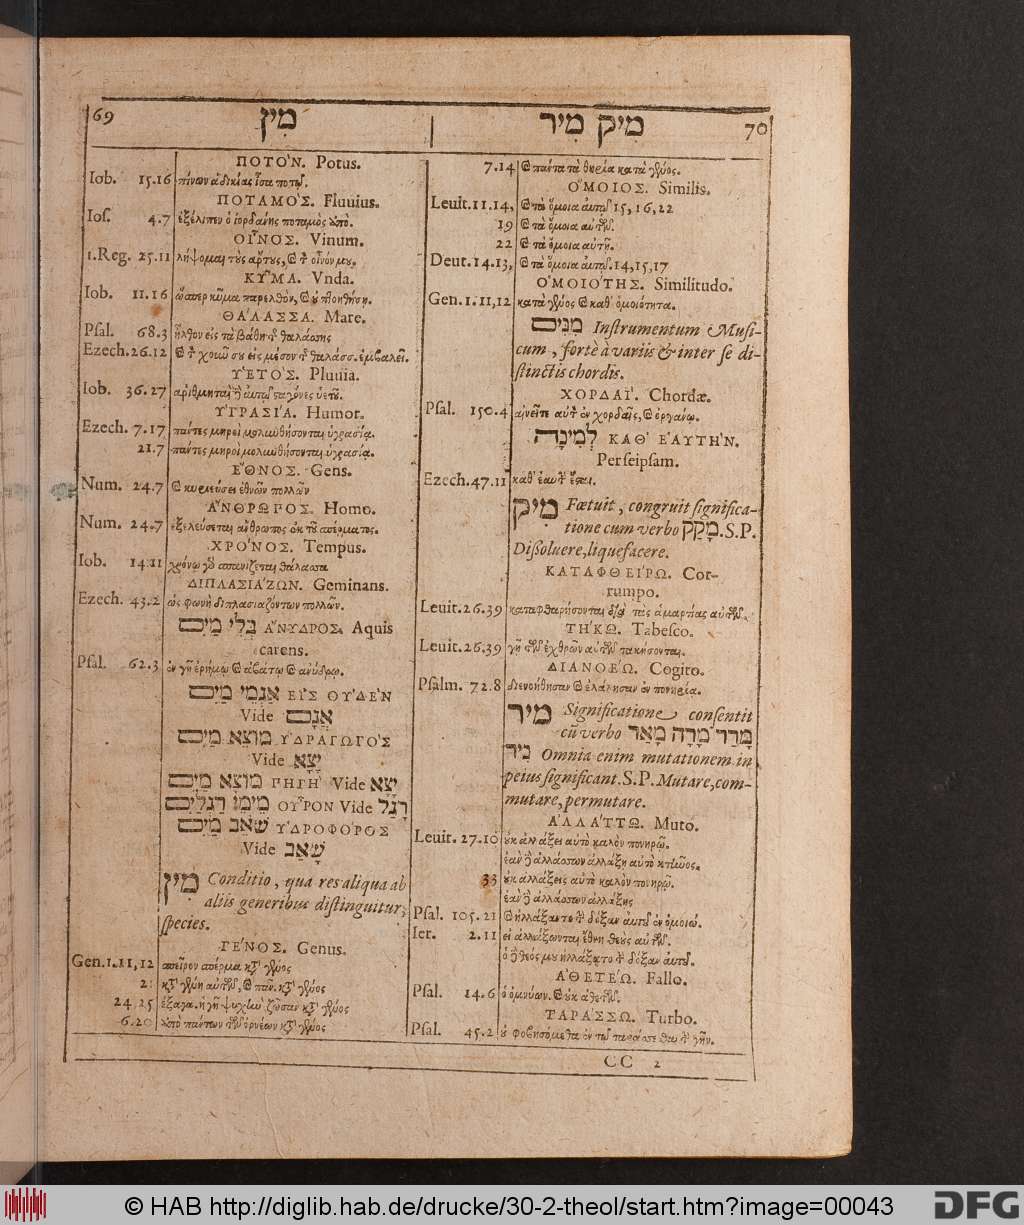 69 מִין
ΠΟΤΟ'Ν. Potus.
Iob. 15.16 πίνων ἀδικίας ἴσα ποτῷ.
ΠΟΤΑΜΟ'Σ. Fluuius.
Ios. 4.7 ἐξέλιπεν ὁ ἰορδάνης ποταμὸς
ΟΙ͂ΝΟΣ. Vinum.
1.Reg. 25.11 λήψομαι τοὺς ἄρτους, καὶ τ οἶνόν μου.
ΚΥ͂ΜΑ. Vnda.
Iob. 11.16 ὥσπερ κῦμα παρελθὸν, καὶ οὐ πτοηθήσῃ.
ΘΑ'ΛΑΣΣΑ. Mare.
Psal. 68.3 ἦλθον εἰς τὰ βάθη τ θαλάσσης
Ezech. 26.12 καὶ τ χοιῶ σου εἰς μέσον τ θαλάσσ. ἐμβαλεῖ.
ΥἹΕΤΟΣ. Pluuia.
Iob. 36.27 ἀριθμηταὶ ϳ αὐτῷ σαγόνες ὑετοῦ.
ΥἹΓΡΑΣΙ'Α. Humor.
Ezech. 7.17 πάντες μηροὶ μολυνθήσονται ὑγρασίᾳ.
21.7 πάντες μηροὶ μολυνθήσονται ὑγρασίᾳ.
ἜΘΝΟΣ. Gens.
Num. 24.7 καὶ κυριεύσει ἐθνῶν πολλῶν
ἌΝΘΡΩΠΟΣ. Homo.
Num. 24.7 ἐξελεύσεται ἄνθρωπος ἐκ τοῦ σπέρματος.
ΧΡΟ'ΝΟΣ. Tempus.
Iob. 14.11 χρόνῳ γὸ σπανίζεται θάλασσα
ΔΙΠΛΑΣΙΑ'ΖΩΝ. Geminans.
Ezech. 43.2 ὡς φωνὴ διπλασιαζόντων πολλῶν.
בְּלִי מַיִם ἌΝΥΔΡΟΣ. Aquis
carens.
Psal. 62.3 ἐν γῇ ἐρήμῳ καὶ ἀβάτῳ καὶ ἀνύδρῳ.
אַגְמֵי מַיִם ΕΙΣ ΟΥ'ΔΕ'Ν
Vide אֲגַם
מוֹצָא מַיִם ΥἹΔΡΑΓΩΓΟ'Σ
Vide יָצָא
מוֹצָא מַיִם ΠΗΓΗ' Vide יָצָא
מֵימֵי רַגְלַיִם ΟΥ͂ΡΟΝ Vide רָגַל
שֹׁאֵב מַיִם ΥἹΔΡΟΦΟ'ΡΟΣ
Vide שָׁאַב
מִין Conditio, qua res aliqua ab
aliis generibus distinguitur,
species.
ΓΕ'ΝΟΣ. Genus.
Gen. 1.11, 12 σπεῖρον σπέρμα κτ γένος
21 κτ γένη αὐτῶν, καὶ πᾶν. κτ γένος
24.25 ἐξαγα. ἡ γῆ ψυχὴν ζῶσαν κτ γένος
6.20 ἀπὸ πάντων τῶν ὀρνέων κτ γένος
מִיק מִיר 70
7.14 καὶ πάντα τὰ θηρία κατὰ γένος.
ὍΜΟΙΟΣ. Similis.
Leuit. 11.14, καὶ τὰ ὅμοια αὐτῷ 15, 16, 22
19 καὶ τὰ ὅμοια αὐτῶν.
22 καὶ τὰ ὅμοια αὐτῇ.
Deut. 14.13, καὶ τὰ ὅμοια αὐτῷ. 14, 15, 17
ὉΜΟΙΟ'ΤΗΣ. Similitudo.
Gen. 1.11, 12 κατὰ γένος καὶ καθ' ὁμοιότητα.
מִנִּים Instrumentum Musi-
cum, fortè à variis & inter se di-
stinctis chordis.
ΧΟΡΔΑΙ'. Chordæ.
Psal. 150.4 αἰνεῖτε αὐτ ἐν χορδαῖς, καὶ ὀργάνῳ.
לְמִינָהּ ΚΑΘ' ἙΑΥΤΗ'Ν.
Per seipsam.
Ezech. 47.11 καθ' ἑαυτ ἔσαι.
מִיק Fœtuit, congruit significa-
tione cum verbo מָקַק. S.P.
Dissoluere, liquefacere.
ΚΑΤΑΦΘΕΙ'ΡΩ. Cor-
rumpo.
Leuit. 26.39 καταφθαρήσονται διὰ τὰς ἁμαρτίας αὐτῶν.
ΤΗ'ΚΩ. Tabesco.
Leuit. 26.39 γῇ τῶν ἐχθρῶν αὐτῶν τακήσονται.
ΔΙΑΝΟΕ'Ω. Cogito.
Psalm. 72.8 διενοήθησαν καὶ ἐλάλησαν ἐν πονηρίᾳ.
מִיר Significatione consentit
cū verbo מָרַר מָרָה מָאַר
נִיר Omnia enim mutationem in
peius significant. S.P. Mutare, com-
mutare, permutare.
ἈΛΛΑ'ΤΤΩ. Muto.
Leuit. 27.10 οὐκ ἀλλάξει αὐτὸ καλὸν πονηρῷ.
ἐὰν ϳ ἀλλάσσων ἀλλάξῃ αὐτὸ κτῆνος.
33 οὐκ ἀλλάξεις αὐτὸ καλὸν πονηρῷ.
ἐὰν ϳ ἀλλάσσων ἀλλάξῃς
Psal. 105.21 καὶ ἠλλάξαντο τ δόξαν αὐτῶ ἐν ὁμοιώ.
Ier. 2.11 εἰ ἀλλάξωνται ἔθνη θεοὺς αὐτῶν.
ὁ ϳ θεός μου ἠλλάξατο τ δόξαν αὐτῶ.
ἈΘΕΤΕ'Ω. Fallo.
Psal. 14.6 ὁ ὀμνύων. καὶ οὐκ ἀθετῶν.
ΤΑΡΑ'ΣΣΩ. Turbo.
Psal. 45.2 οὐ φοβησόμεθα ἐν τῷ ταράσσεσθαι τ γῆν.
CC 2
© HAB http://diglib.hab.de/drucke/30-2-theol/start.htm?image=00043
DFG